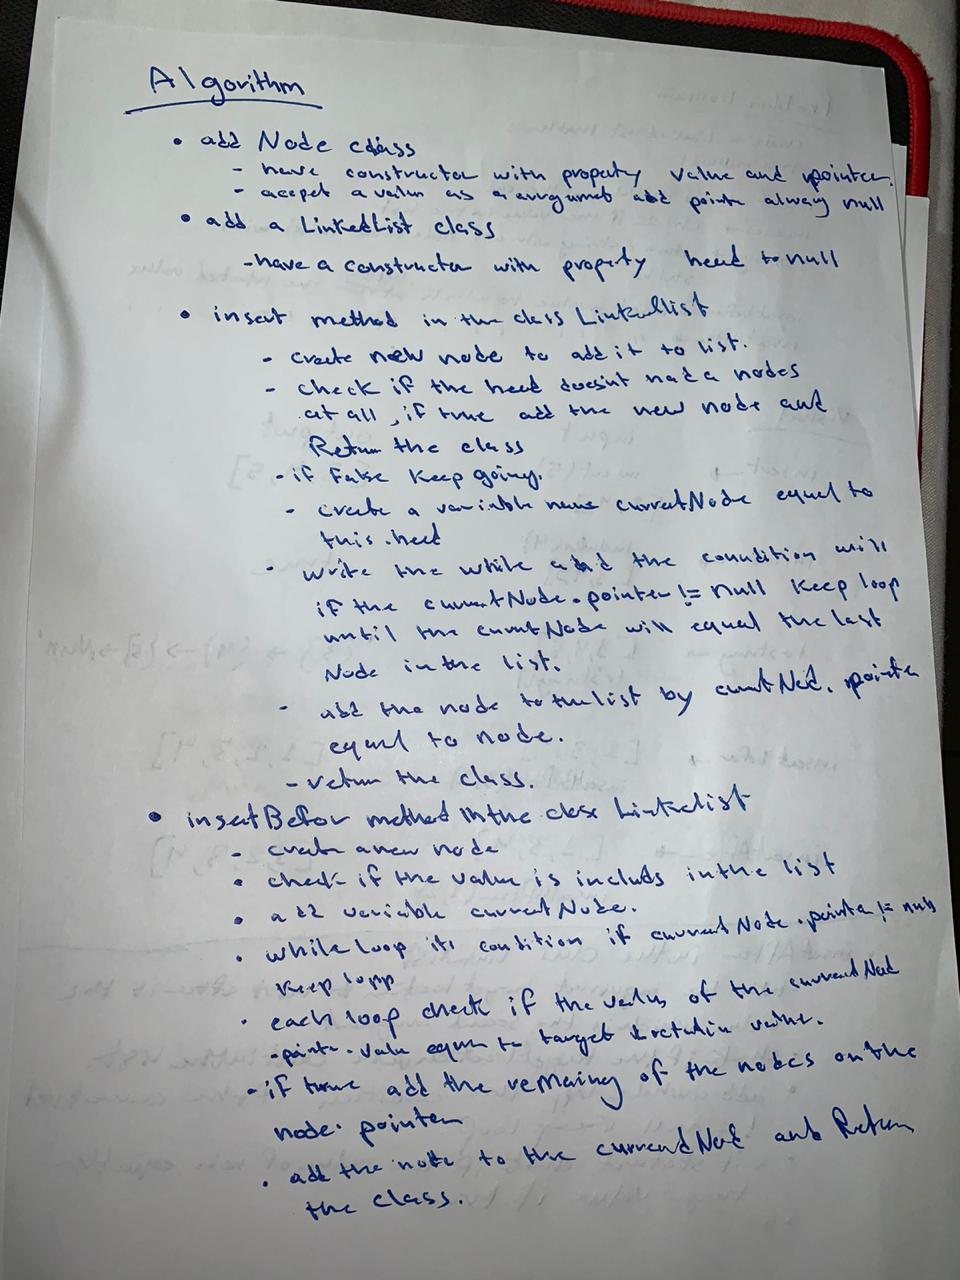 Algorithm
• add Node class
- have constructor with property value and pointer.
- accept a value as a argumet add pointe alway null
• add a LinkedList class
- have a constructor with property head to null
• insert method in the class Linkedlist
- create new node to add it to list.
- check if the head doesint nada nodes
at all, if true add the new node and
Return the class
- if False Keep going.
- create a variable name currentNode equel to
this.head
• write the while add the conndition will
if the currentNode.pointer != null Keep loop
until the currntNode will equel the last
Node in the list.
- add the node to the list by currntNod. pointe
equel to node.
- return the class.
• insertBefor method in the class Linkelist
- create a new node
• check if the value is includs in the list
• add variable currentNode.
• while loop its condition if currentNode.pointe != null
Keep loop
• each loop check if the value of the currentNod
.pointe.value equen to target value.
- if true add the remaing of the nodes on the
node. pointer
• add the note to the currentNod and Return
the class.